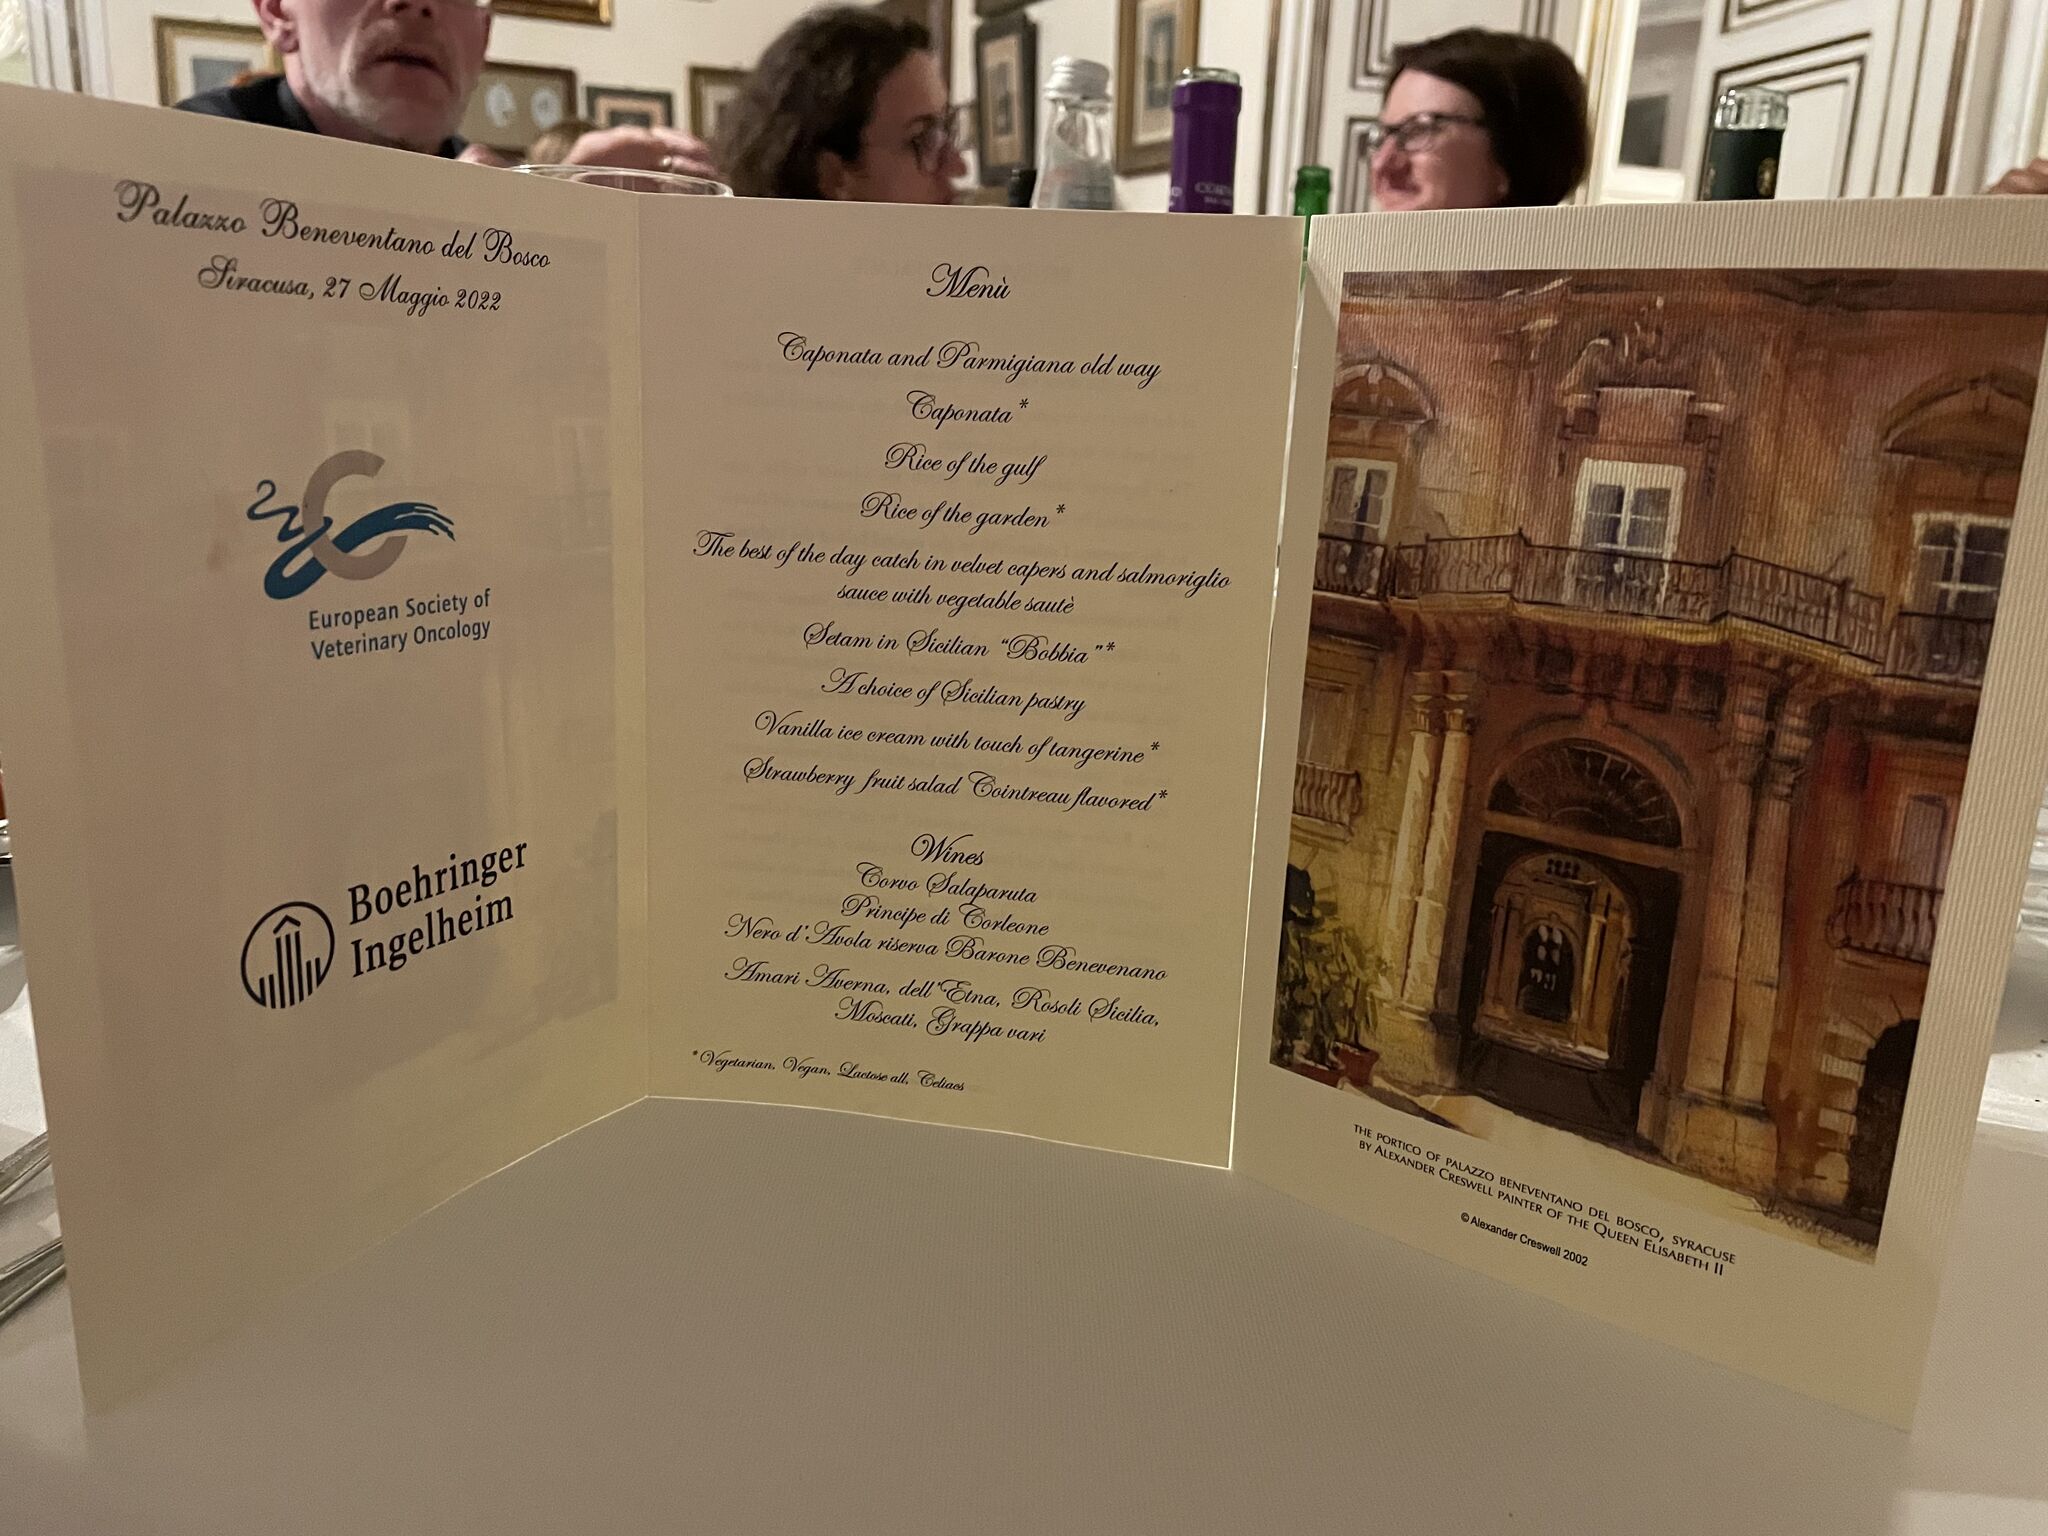 Palazzo Beneventano del Bosco
Siracusa, 27 Maggio 2022
European Society of
Veterinary Oncology
Boehringer
Ingelheim
Menù
Caponata and Parmigiana old way
Caponata *
Rice of the gulf
Rice of the garden *
The best of the day catch in velvet capers and salmoriglio
sauce with vegetable sautè
Setam in Sicilian “Bobbia”*
A choice of Sicilian pastry
Vanilla ice cream with touch of tangerine *
Strawberry fruit salad Cointreau flavored *
Wines
Corvo Salaparuta
Principe di Corleone
Nero d'Avola riserva Barone Benevenano
Amari Averna, dell'Etna, Rosoli Sicilia,
Moscati, Grappa vari
* Vegetarian, Vegan, Lactose all, Celiacs
THE PORTICO OF PALAZZO BENEVENTANO DEL BOSCO, SYRACUSE
BY ALEXANDER CRESWELL PAINTER OF THE QUEEN ELISABETH II
© Alexander Creswell 2002